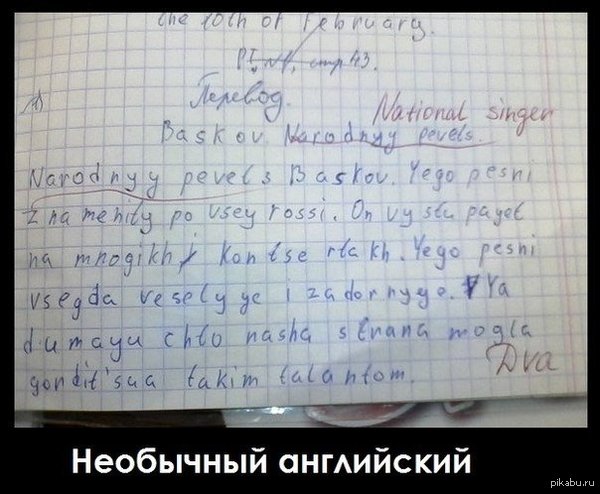 the 10th of February.
стр 43.
Перевод.
National singer
Baskov. Narodnyy pevets.
Narodnyy pevets Baskov. Yego pesni
znamenity po vsey rossi. On vystupayet
na mnogikh kontsertakh. Yego pesni
vsegda veselyye i zadornyye. Ya
dumayu chto nasha strana mogla
gordit'saa takim talantom.
Dva
Необычный английский
pikabu.ru